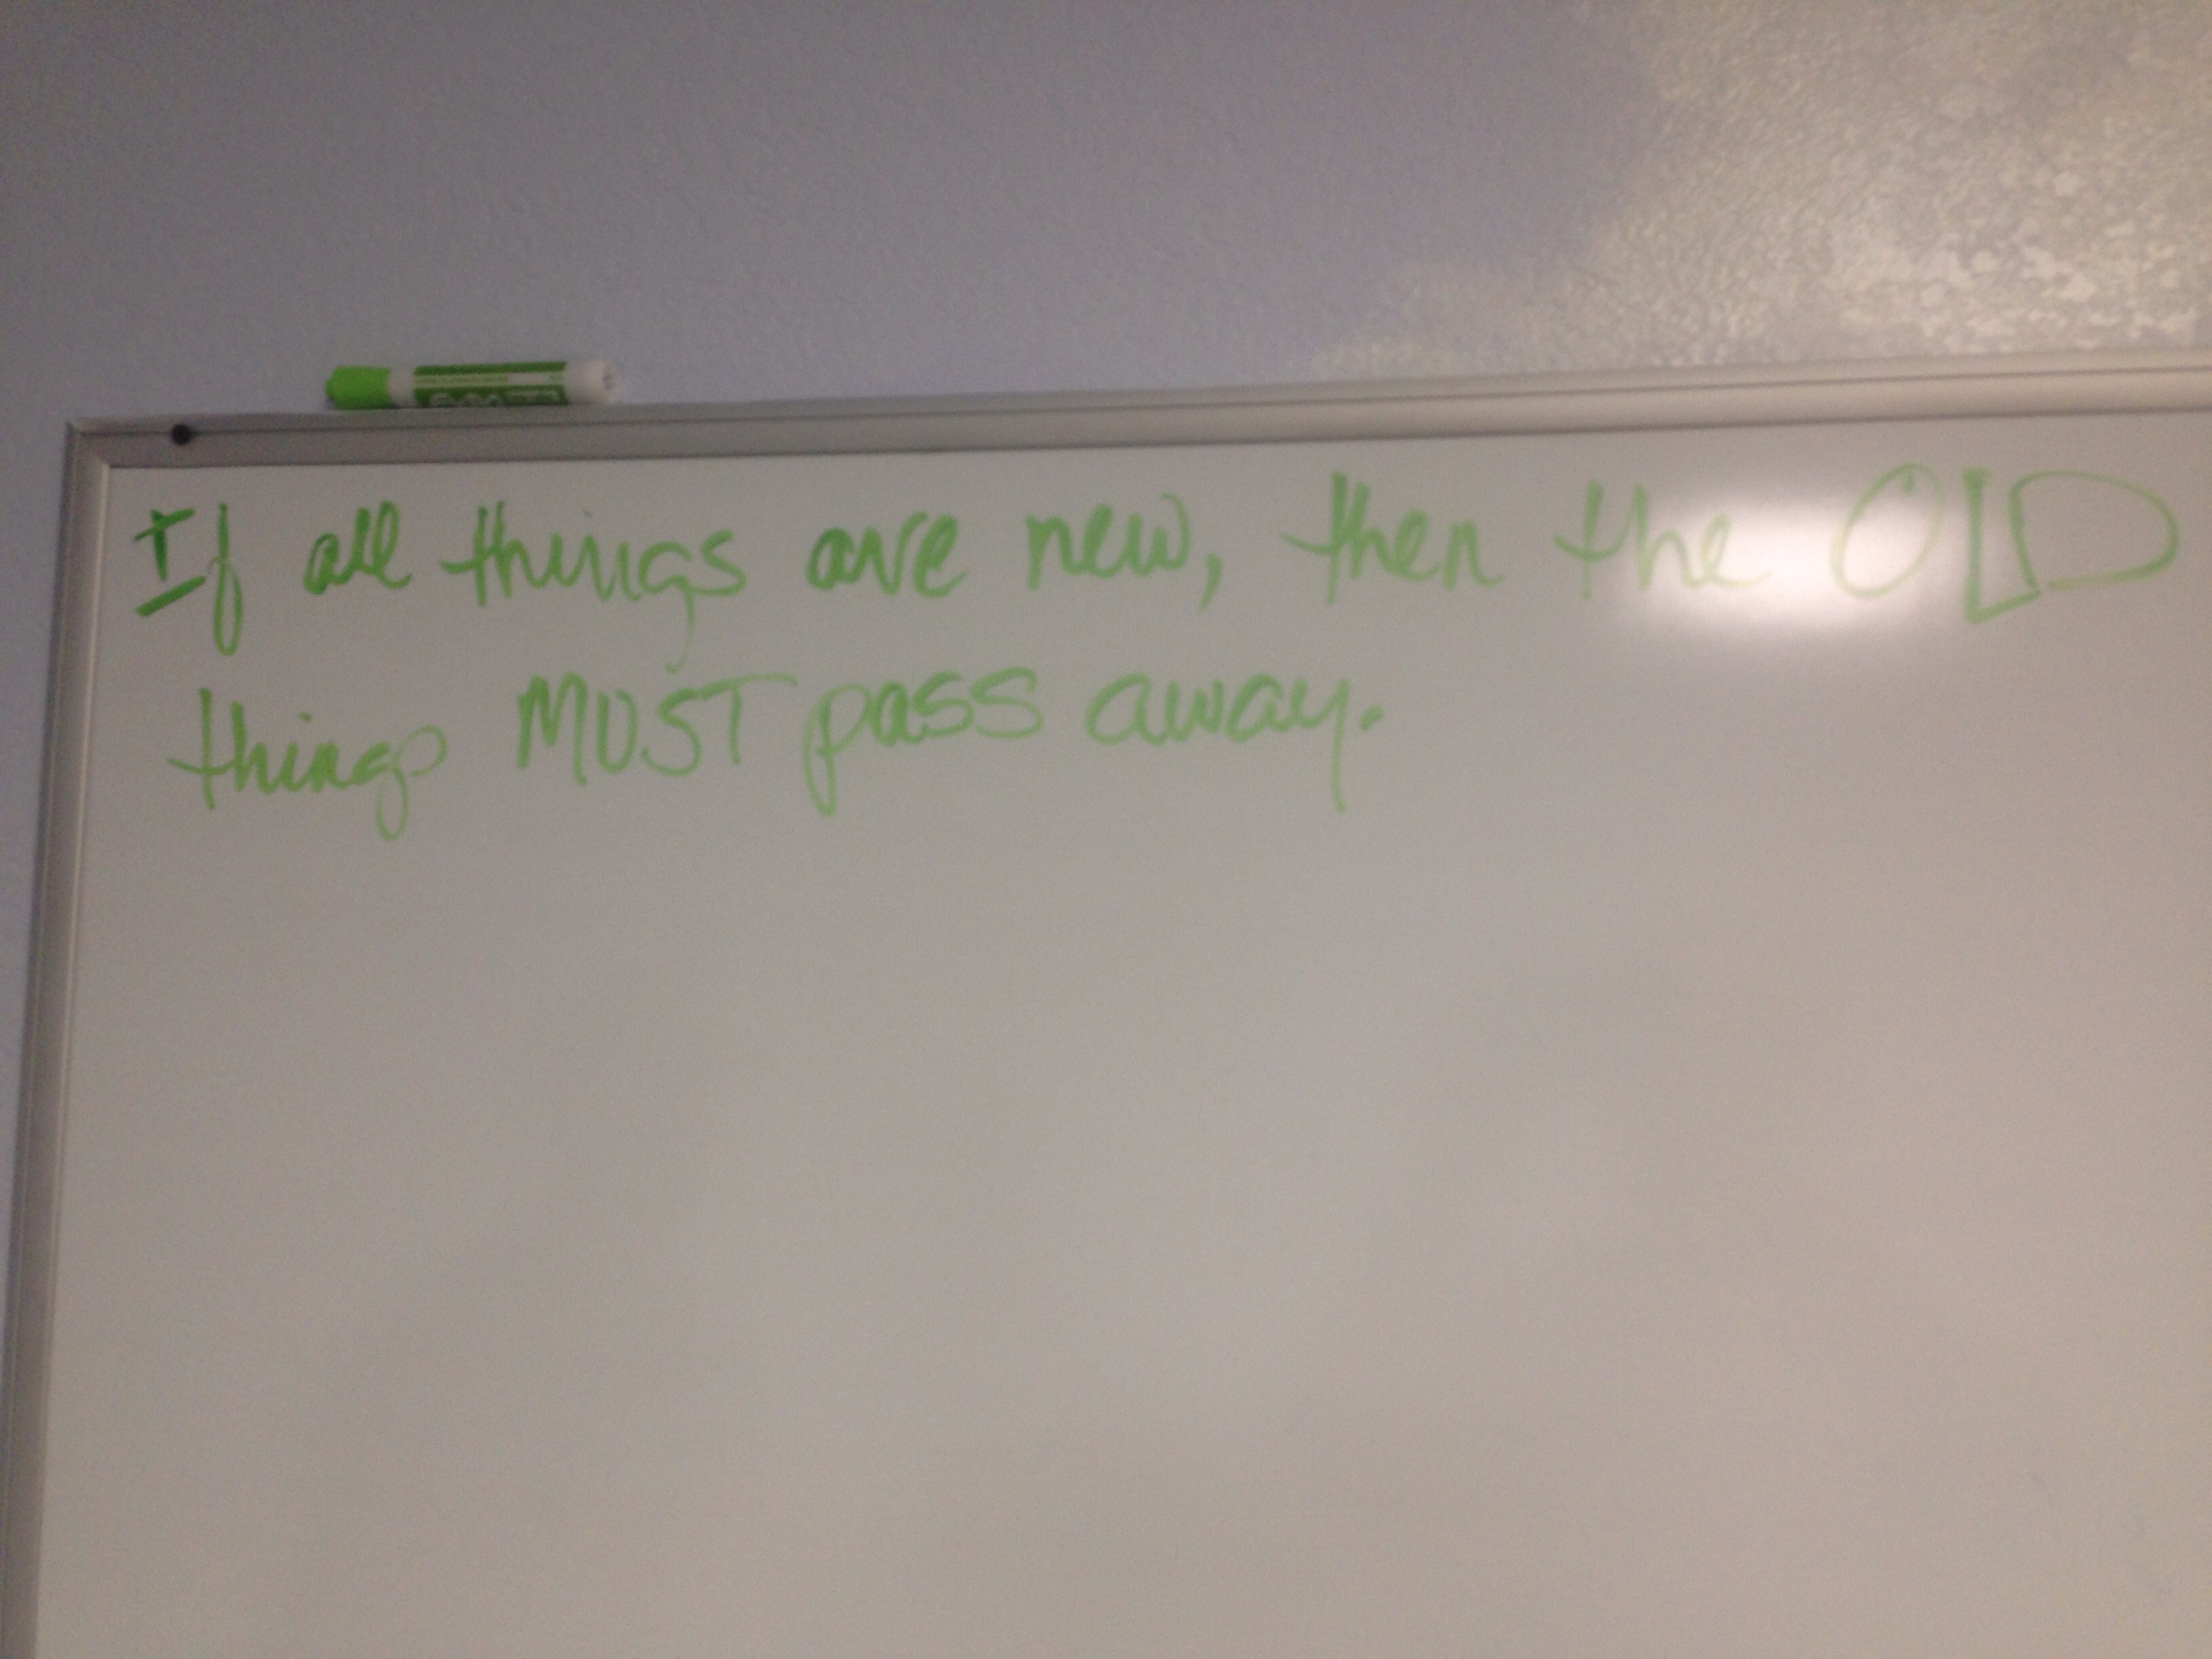 If all things are new, then the OLD
things MUST pass away.